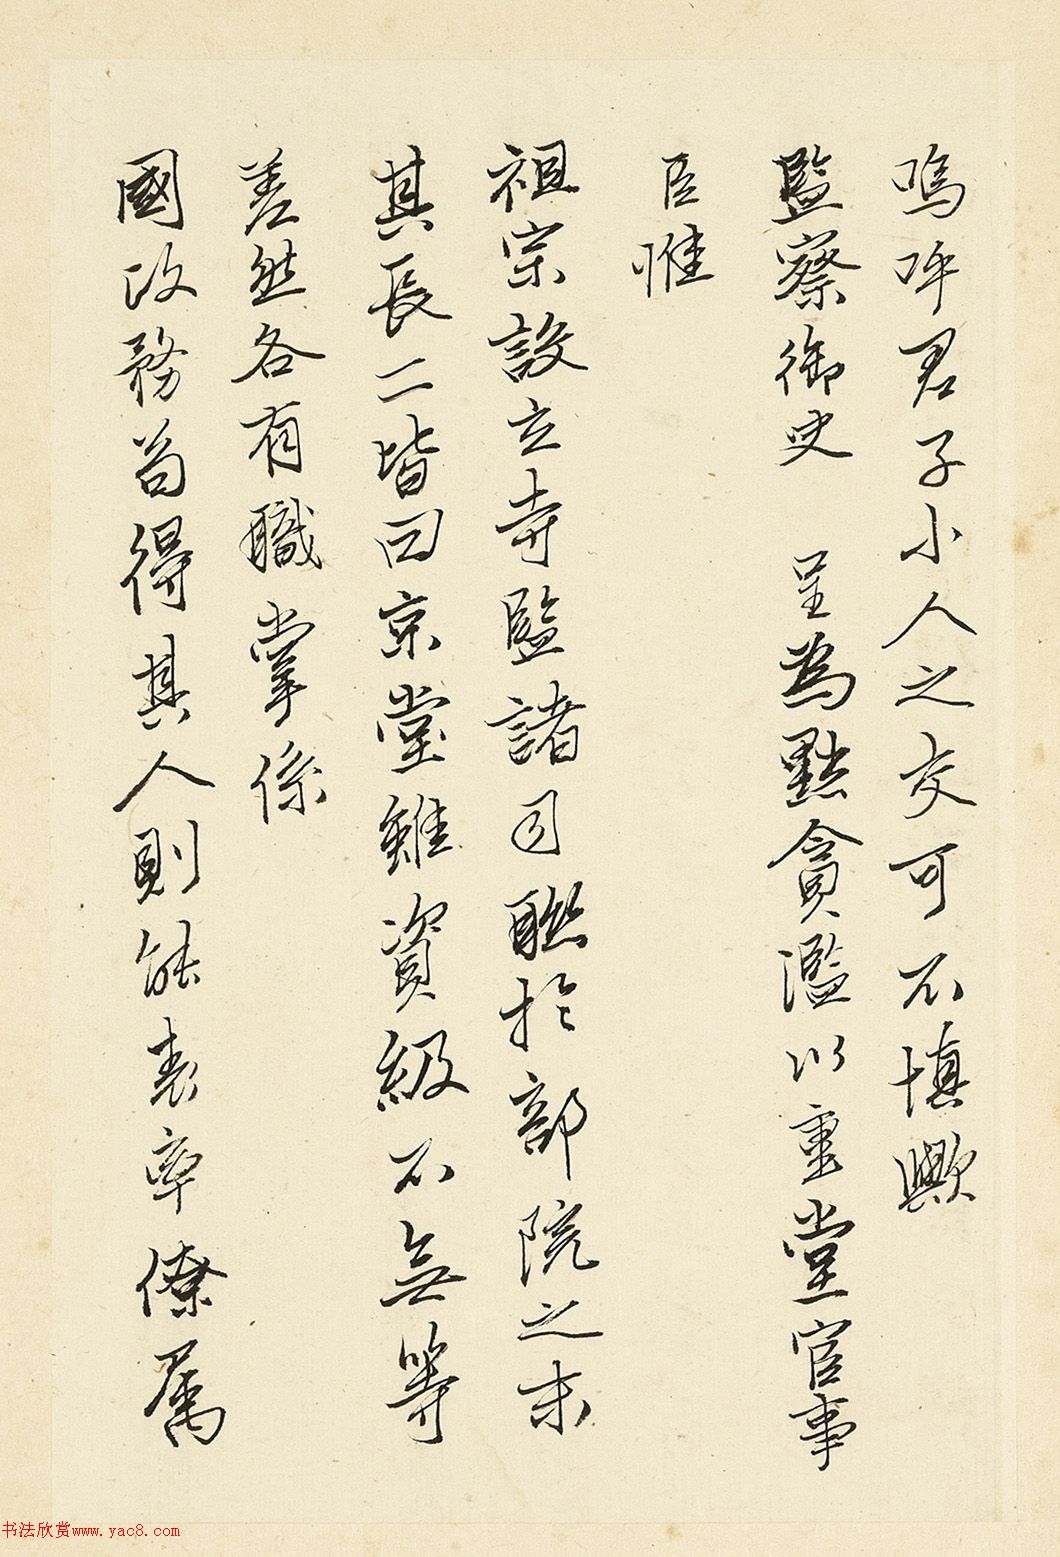 嗚呼君子小人之交可不慎歟
監察御史 呈為黜貪濫以重堂官事
臣惟
祖宗設立寺監諸司聯於部院之末
其長二皆曰京堂雖資級不無等
差然各有職掌係
國政務苟得其人則能表率僚屬
书法欣赏www.yac8.com